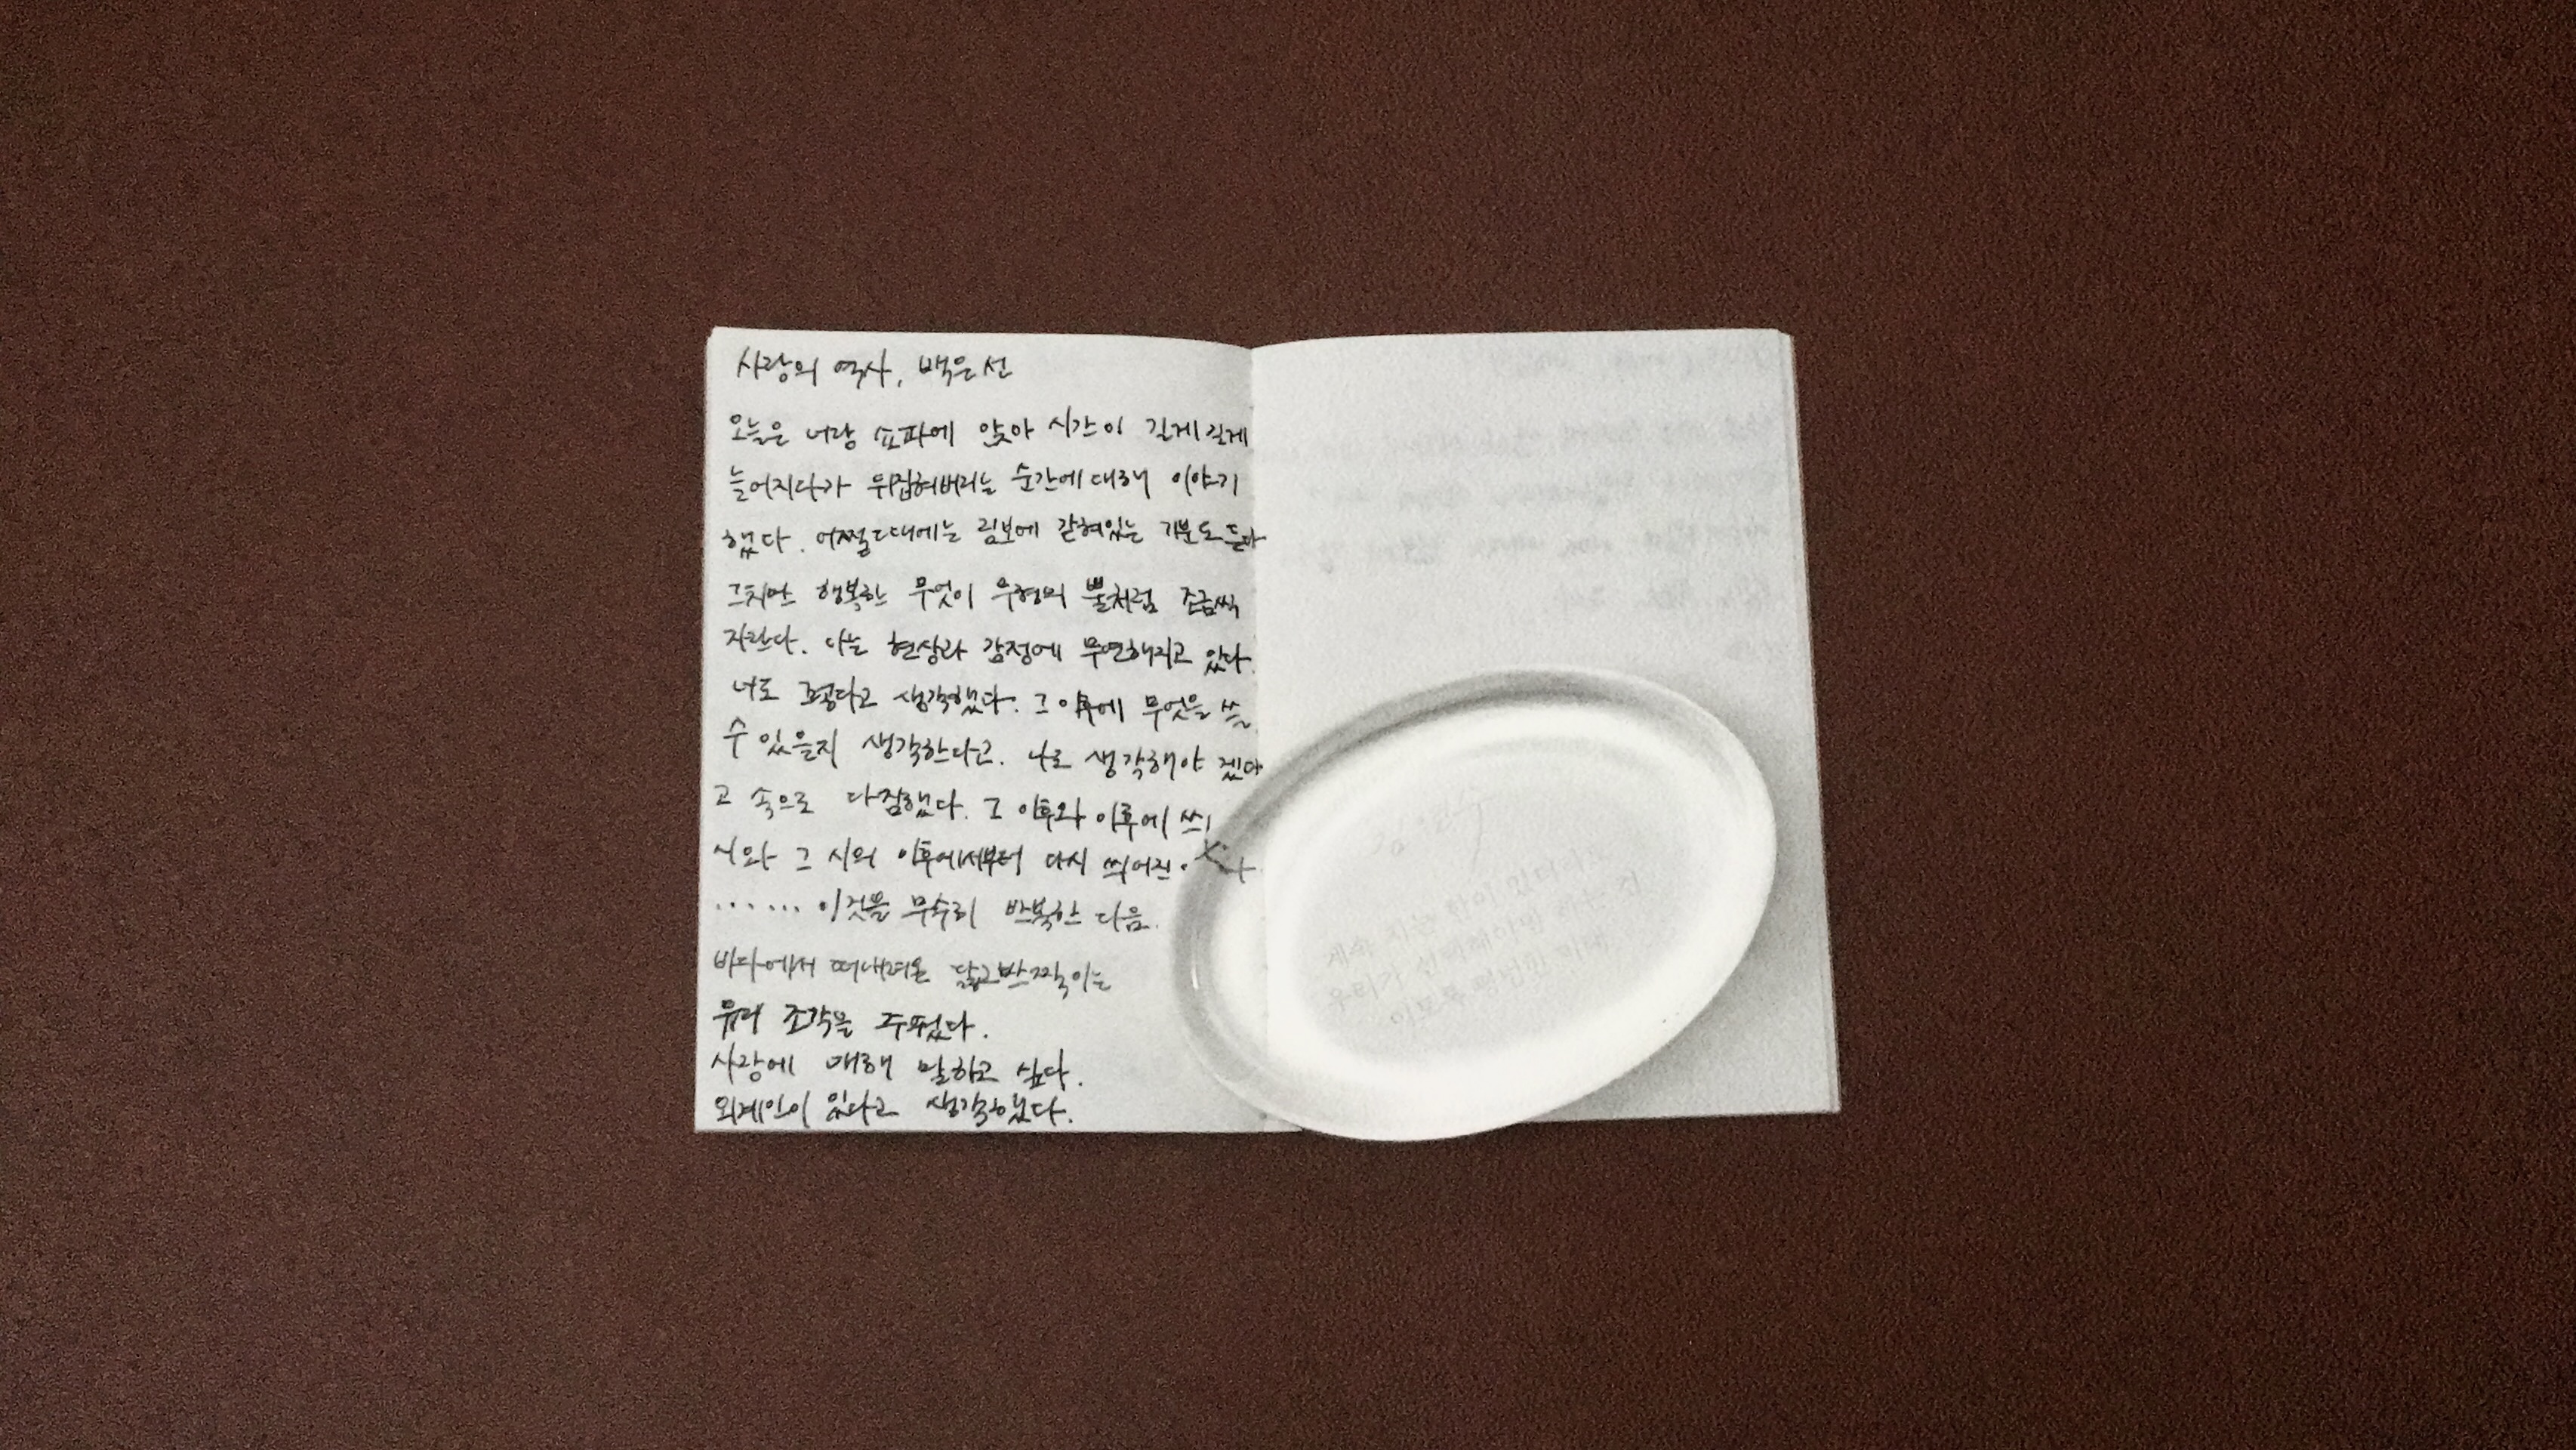 사랑의 역사, 백은선
오늘은 너랑 쇼파에 앉아 시간이 길게길게
늘어지다가 뒤집혀버리는 순간에 대해 이야기
했다. 어쩔 때에는 림보에 갇혀있는 기분도 든다
그치만 행복한 무엇이 우형의 뿔처럼 조금씩
자란다. 나는 현상과 감정에 무연해지고 있다.
너도 그렇다고 생각했다. 그 이후에 무엇을 쓸
수 있을지 생각한다고. 나도 생각해야 겠다
고 속으로 다짐했다. 그 이후와 이후에 쓰
시와 그 시의 이후에서부터 다시 씌어진
······ 이것을 무수히 반복한 다음.
바다에서 떠내려온 닳고반짝이는
유리 조각을 주웠다.
사랑에 대해 말하고 싶다.
외계인이 있다고 생각했다.